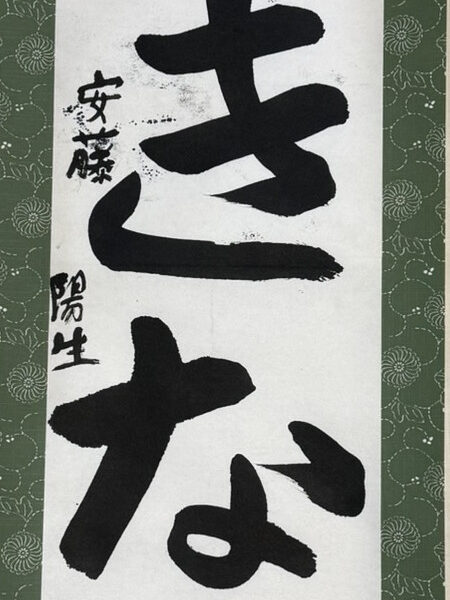 きな
安藤
陽生